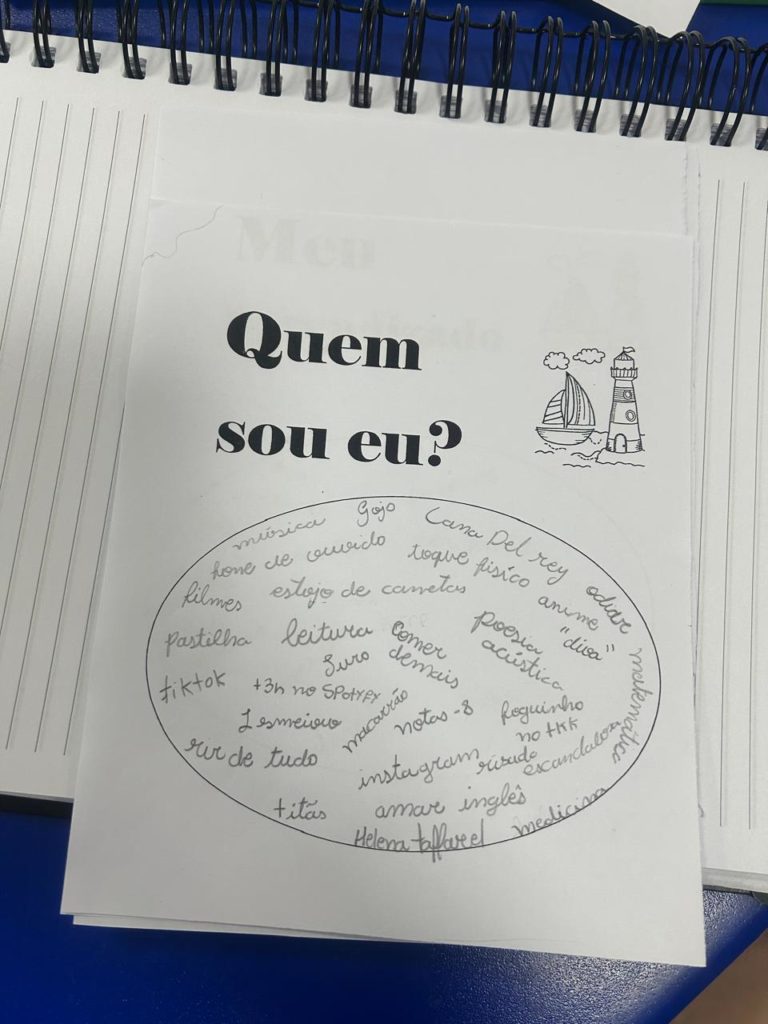 Quem
sou eu?
música Gojo Lana Del rey
fone de ouvido toque físico
filmes estojo de canetas anime odiar
pastilha leitura comer poesia "diva"
Juro demais acústica matemática
tiktok +3h no SPOTYFY
macarrão notas -8 foguinho
no tkk
rir de tudo instagram risada escandalosa
titãs amar inglês medicina
Helena taffarel